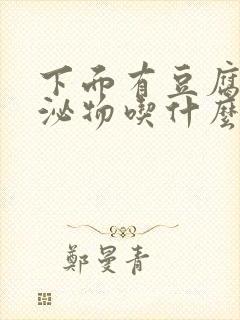 下而有豆腐
泌物喫什麼
鄭曼青